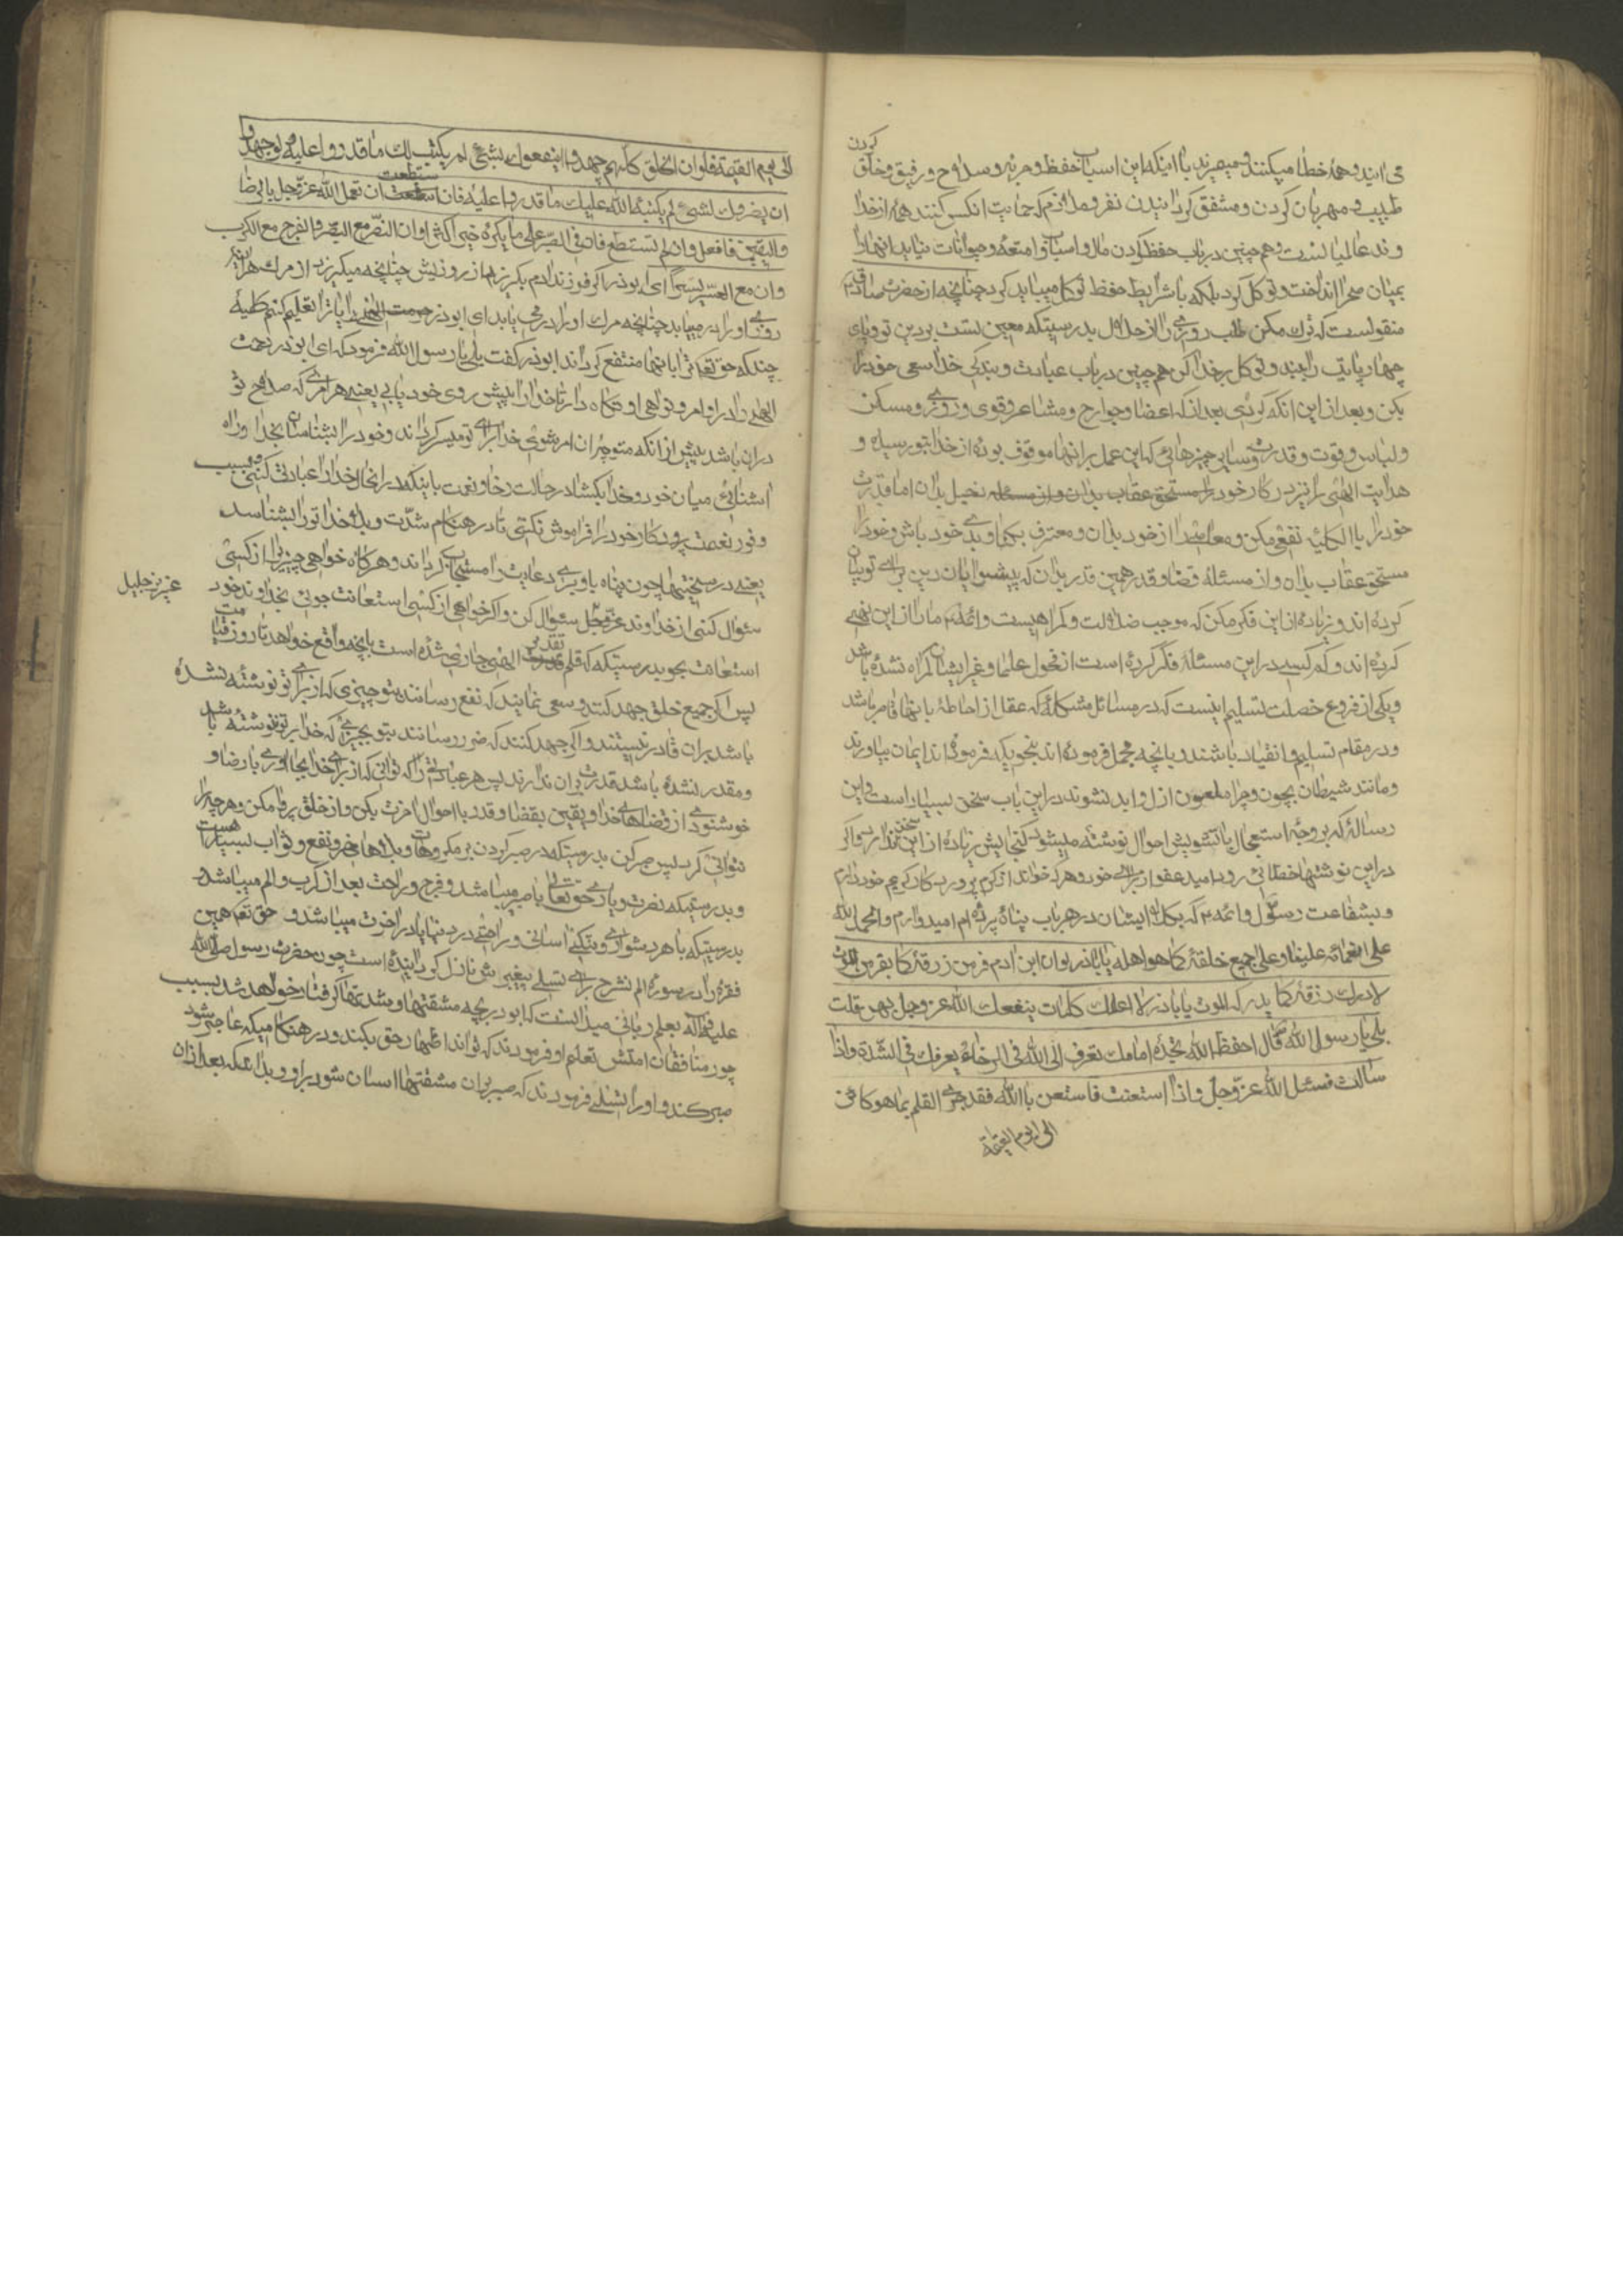 کردن
می‌ایند و همه خطا میکنند و میمیرند با اینکه این اسباب حفظ و حربه و سلاح و رفیق و خلق
طبیب و مهربان کردن و مشفق کردانیدن نفر و ملازم که حمایت انکس کنند همه از خدا
وند عالمیانست و هم چنین در باب حفظ کردن مال و اسباب و امتعه و حیوانات نباید انها را
بمیان صحرا انداخت و توکل کرد بلکه با شرایط حفظ توکل میباید کرد چنانچه از حضرت صادق
منقولست که ترک مکن طلب روزی را از حلال بدرستیکه معین تست بر دین تو و پای
چهارپایت را ببند و توکل بر خدا کن هم چنین در باب عبادت و بندکی خدا سعی خود را
بکن و بعد از این انکه کردی بعد از انکه اعضا و جوارح و مشاعر و قوی و روزی و مسکن
و لباس و قوت و قدرت و سایر چیزهائی که این عمل بر انها موقوف بوده از خدا بتو رسیده و
هدایت الهی را نیز در کار خود بدان اما قدرت
خود را بالکلیه نفی مکن و معاصی را از خود بدان و معترف به بدی خود باش و خود را
مستحق عقاب بدان و از مسئله قضا و قدر همین قدر بدان که پیشوایان دین برای تو بیان
کرده اند و زیاده از این فکر مکن که موجب ضلالت و کمراهیست و ائمه ما را از این نهی
کرده اند و کم کسی در این مسئله فکر کرده است از فحول علما و غیر ایشان که کمراه نشده باشد
و یکی از فروع خصلت تسلیم اینست که در مسائل مشکله که عقل از احاطه بانها قاصر باشد
و در مقام تسلیم و انقیاد باشند و بانچه مجمل فرموده اند بنحویکه فرموده اند ایمان بیاورند
و مانند شیطان بچون و چرا ملعون ازل و ابد نشوند در این باب سخن بسیار است و این
رساله که بر وجه استعجال با تشویش احوال نوشته میشود کنجایش زیاده از این سخن ندارد و اکر
در این نوشتها خطائی رود امید عفو از برای خود و هر که خواند از کرم پروردکار کریم خود دارم
و بشفاعت رسول و ائمه که بکلب ایشان در هر باب پناه برده ام امیدوارم و الحمد لله
علی نعمائه علینا و علی جمیع خلقه کما هو اهله یا اباذر لو ان ابن ادم فر من رزقه کما یفر من الموت
لادرک رزقه کما یدرکه الموت یا اباذر الا اعلمک کلمات ینفعک الله عز و جل بهن قلت
بلی یا رسول الله قال احفظ الله تجده امامک تعرف الی الله فی الرخاء یعرفک فی الشدة و اذا
سالت فسئل الله عز و جل و اذا استعنت فاستعن باالله فقد جری القلم بما هو کائن
الی یوم القیمة
الی یوم القیمة فلو ان الخلق کلهم جهدوا ان ینفعوک بشئ لم یکتب لک ما قدروا علیه و لو جهدوا
ان یضروک بشئ لم یکتبه الله علیک ما قدروا علیه فان استطعت ان تعمل لله عز و جل بالرضا
و الیقین فافعل و ان لم تستطع فان فی الصبر علی ما یکره خیر اکثیرا و ان النصر مع الصبر و الفرج مع الکرب
و ان مع العسر یسرا ای ابوذر اکر فرزند ادم بکریزد از روزیش چنانچه میکریزد از مرک هر اینه
روزی او را در میابد چنانچه مرک او را در می یابد ای ابوذر ایا ترا تعلیم کنم کلمه
چند که حق تعالی ترا بانها منتفع کرداند ابوذر کفت بلی یا رسول الله فرمود که ای ابوذر
الهی را در اوامر و نواهی او نکاه دار تا خدا را پیش روی خود یابی یعنی هر امری که صلاح تو
در ان باشد پیش از انکه متوجه ان امر شوی خدا برای تو میسر کرداند و خود را بشناسان بخدا و راه
اشنائی میان خود و خدا بکشا در حالت رخا و نعمت باینکه در انحال خدا را عبادت کنی و بسبب
وفور نعمت پروردکار خود را فراموش نکنی تا در هنکام شدت و بلا خدا تو را بشناسد
یعنی در سختیها چون پناه باو بری دعایت را مستجاب کرداند و هرکاه خواهی چیزی را از کسی
سئوال کنی از خداوند عز و جل سئوال کن و اکر خواهی از کسی استعانت جوئی بخداوند خود
عزیز جلیل
استعانت بجو بدرستیکه که قلم تقدیر الهی جاری شده است بانچه واقع خواهد شد تا روز قیامت
پس اکر جمیع خلق جهد کنند و سعی نمایند که نفع رسانند بتو چیزی که از برای تو نوشته نشده
باشد بران قادر نیستند و اکر جهد کنند که ضرر رسانند بتو بچیزی که خدا بر تو ننوشته باشد
و مقدر نشده باشد قدرت بران ندارند پس هر عبادتی را که توانی که از برای خدا بجا اوری با رضا و
خوشنودی از قضاهای خدا و یقین بقضا و قدر با احوال اخرت بکن و از خلق پروا مکن و هرچه را
نتوانی کرد پس صبر کن بدرستیکه در صبر کردن بر مکروهات و بلاها خیر و نفع و ثواب بسیار است
و بدرستیکه نصرت و یاری حق تعالی با صبر میباشد و فرج و راحت بعد از کرب و الم میباشد
بدرستیکه با هر دشواری و تنکی اسانی و راحتی در دنیا یا در اخرت میباشد و حق تعالی همین
فقره را در سوره الم نشرح برای تسلی پیغمبرش نازل کردانیده است چون حضرت رسول صلی الله
علیه و اله بعلم ربانی میدانست که ابوذر بچه مشقتها و شدتها کرفتار خواهد شد بسبب
جور منافقان امتش تعلیم او فرمودند که تواند اظهار حق بکند و در هنکامیکه عاجز شود
صبر کند و او را تسلی فرمودند که صبر بران مشقتها اسان شود بر او و بداند که بعد از ان